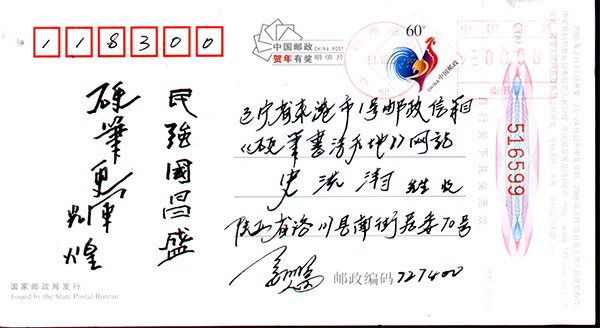 118300
中国邮政 CHINA POST
贺年有奖 明信片
60分
CHINA中国邮政
辽宁省东港市1号邮政信箱
《硬笔书法天地》网站
史洪清 先生 收
陕西省洛川县南街居委70号
邮政编码 727400
民强國昌盛
硬筆更輝煌
516599
国家邮政局发行
Issued by the State Postal Bureau